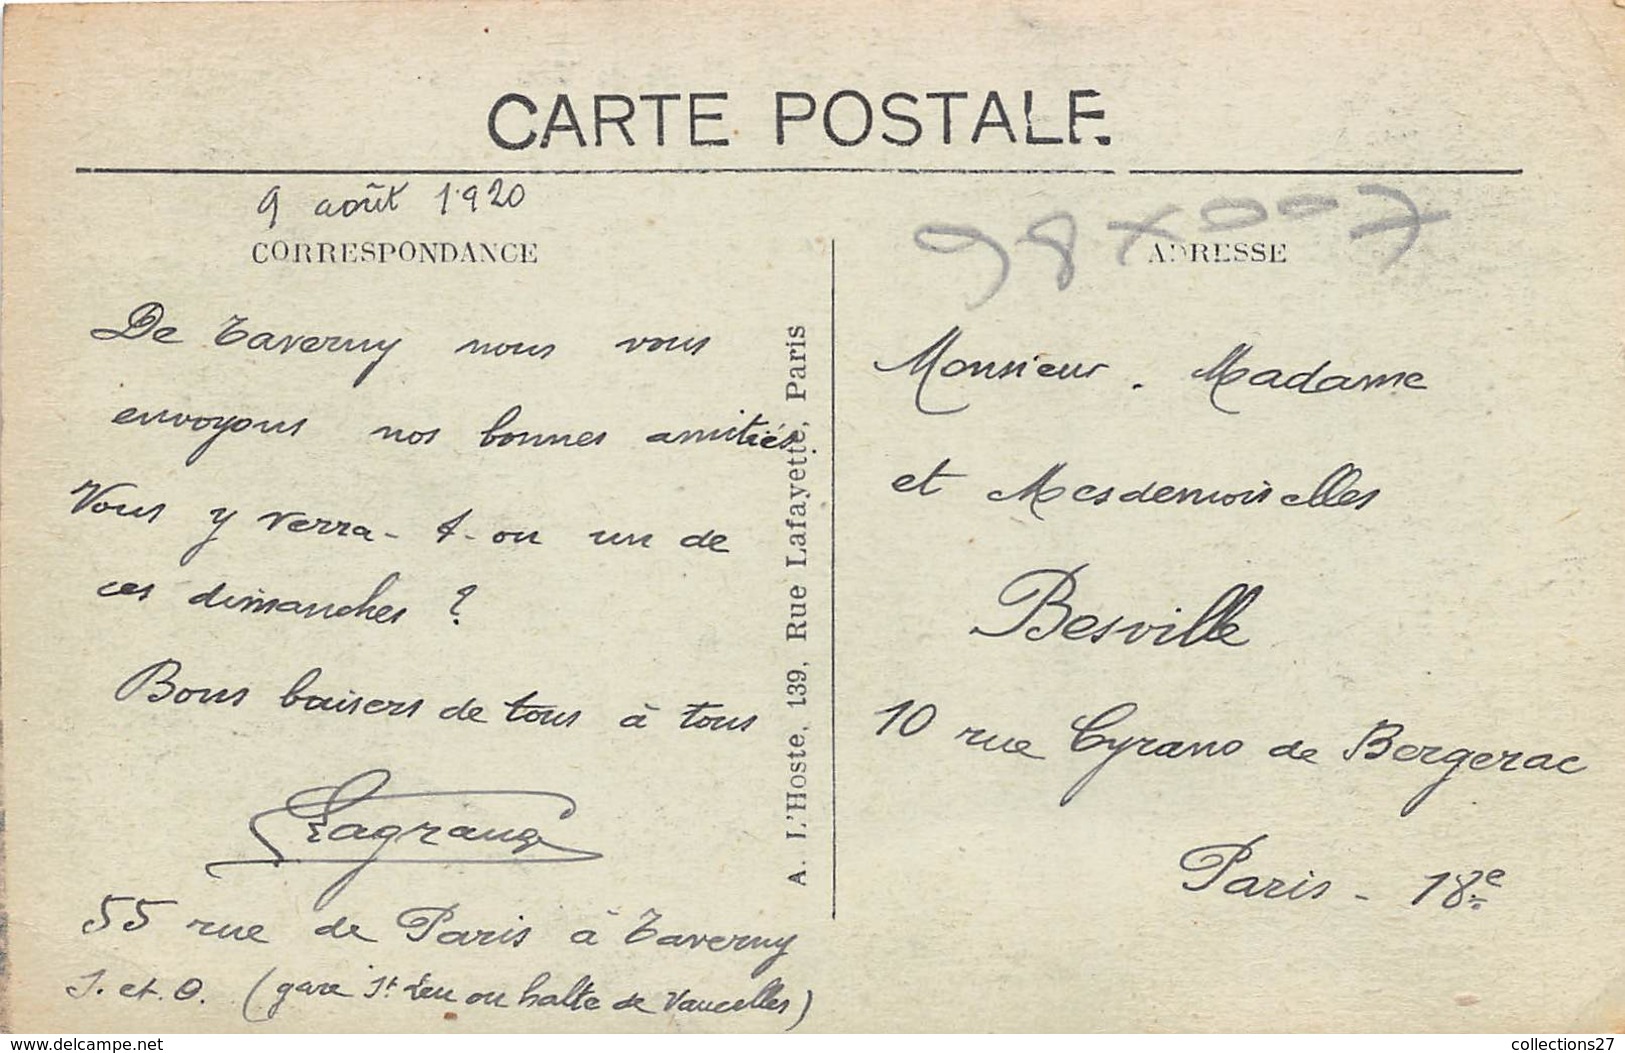 CARTE POSTALE
9 août 1920
CORRESPONDANCE
De Taverny nous vous
envoyons nos bonnes amitiés.
Vous y verra-t-on un de
ces dimanches ?
Bons baisers de tous à tous
Lagrange
55 rue de Paris à Taverny
S. et O. (gare St Leu ou halte de Vaucelles)
A. L'Hoste, 139, Rue Lafayette, Paris
98x007
ADRESSE
Monsieur. Madame
et Mesdemoiselles
Besville
10 rue Cyrano de Bergerac
Paris - 18e
delcampe.net
collections27